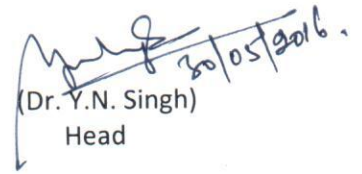 30/05/2016.
(Dr. Y.N. Singh)
Head